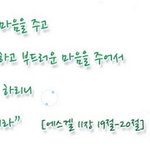 마음을 주고
하고 부드러운 마음을 주어서
하리니
라" [에스겔 11장 19절-20절]